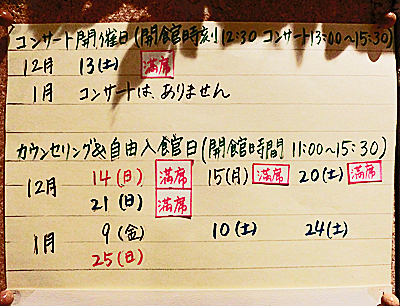 コンサート開催日(開館時刻12:30 コンサート13:00〜15:30)
12月 13(土) 満席
1月 コンサートは、ありません
カウンセリング&自由入館日(開館時間 11:00〜15:30)
12月 14(日) 満席 15(月) 満席 20(土) 満席
21(日) 満席
1月 9(金) 10(土) 24(土)
25(日)